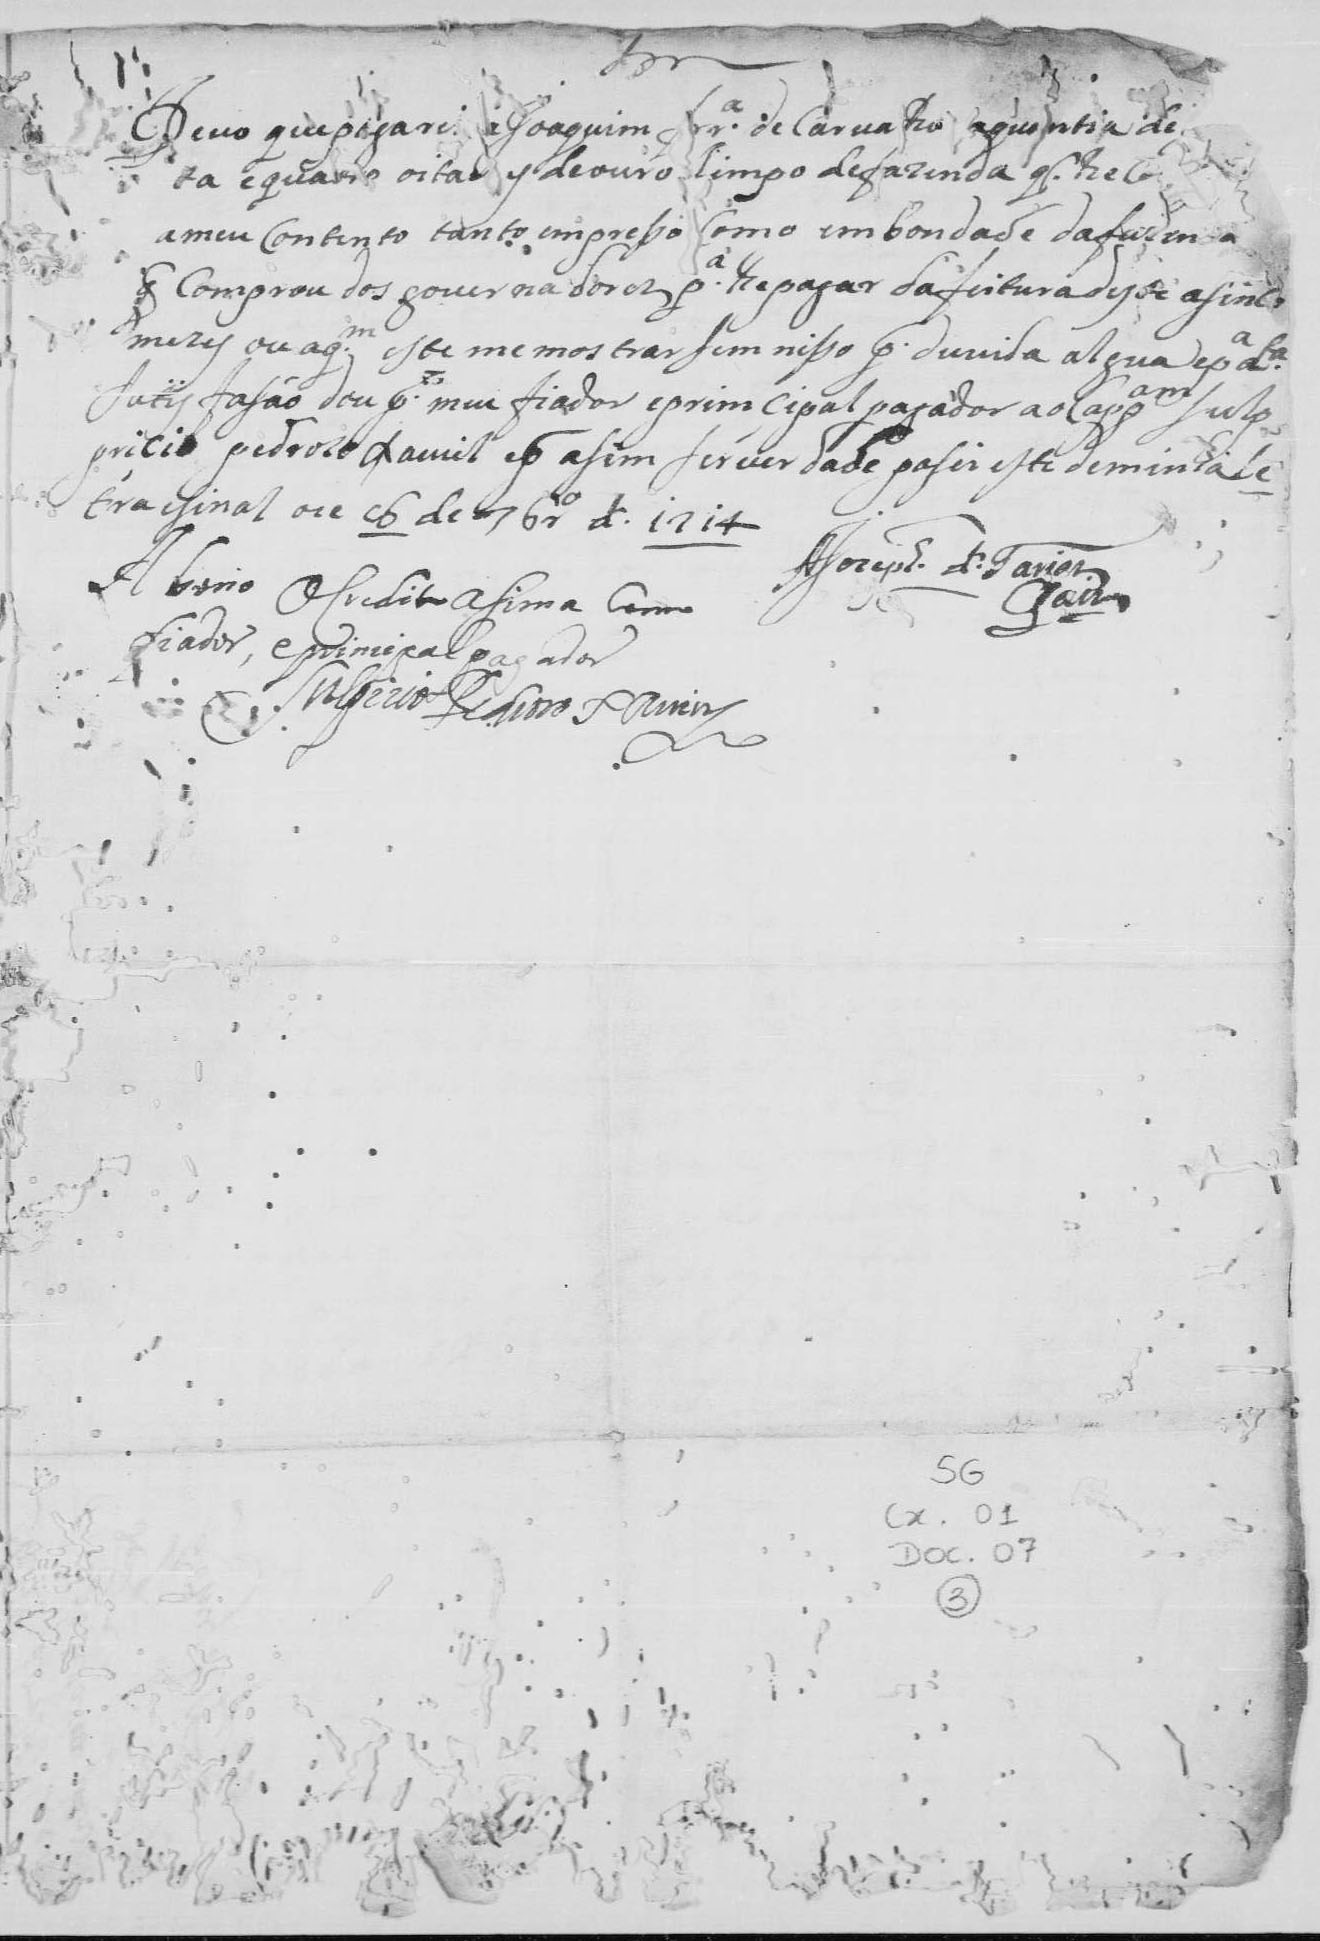 Devo que pagarei a Joaquim frr.ª de Carvalho aquantia de
ta equatro oitavas deouro limpo defazenda q. Re
ameu Contento tanto empresso Como embondade dafazenda
q Comprou dos governadores p.ª lhe pagar dafeitura deste asinco
mezes ou aq.m este memostrar sem nisso p. duvida algua ep.ª d.ta
satisfasão dou p. meu fiador eprimcipal pagador aoCapp.am sulp
pricio pedrozo Xavier eq asim ser verdade pasei este deminha le
tra esinal oie 6 de 76r.o d. 1714
Jozeph. d.
A bono OCredito asima Como
fiador, e primcipal pagador
Sulpicio Pedrozo Xavier
SG
Cx. 01
Doc. 07
3